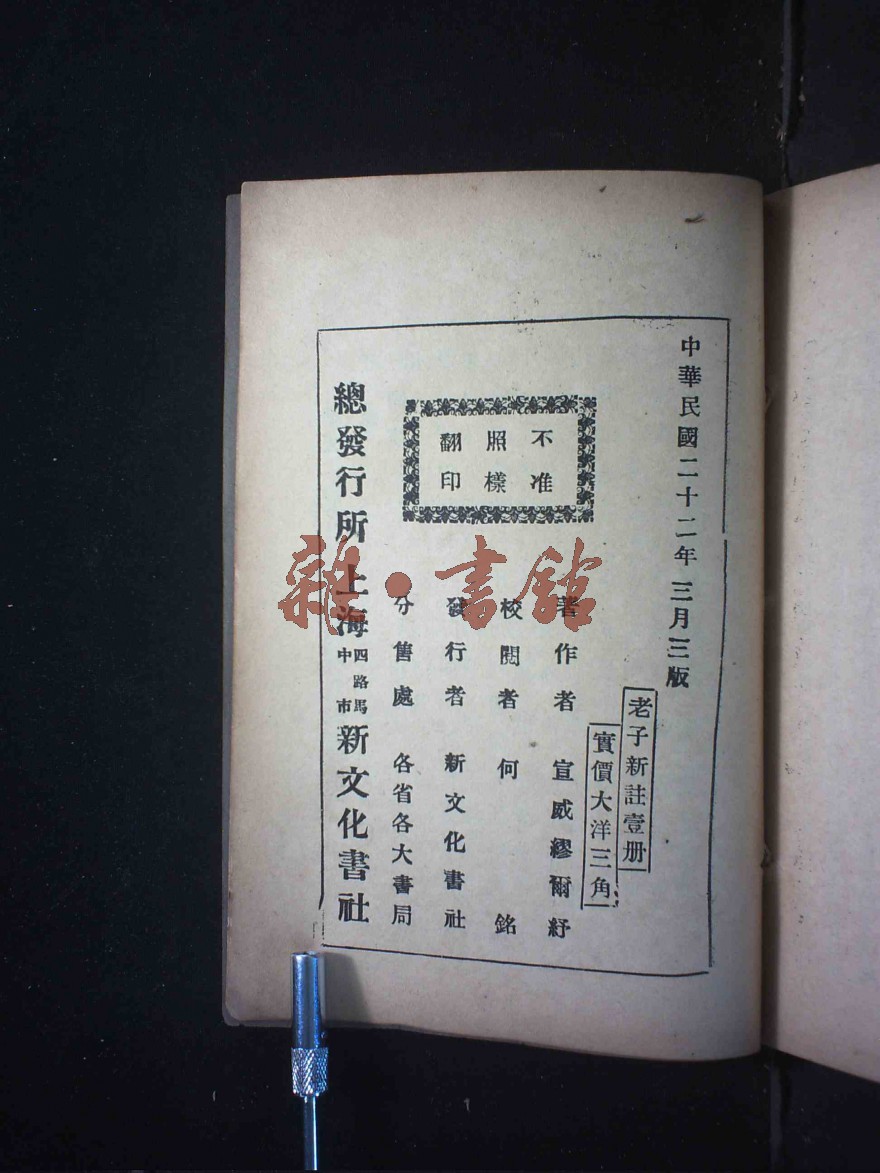 中華民國二十二年三月三版
老子新註壹册
實價大洋三角
不准
照樣
翻印
著作者 宣威繆爾紓
校閱者 何銘
發行者 新文化書社
分售處 各省各大書局
總發行所 上海四馬路中市 新文化書社
雜·書館